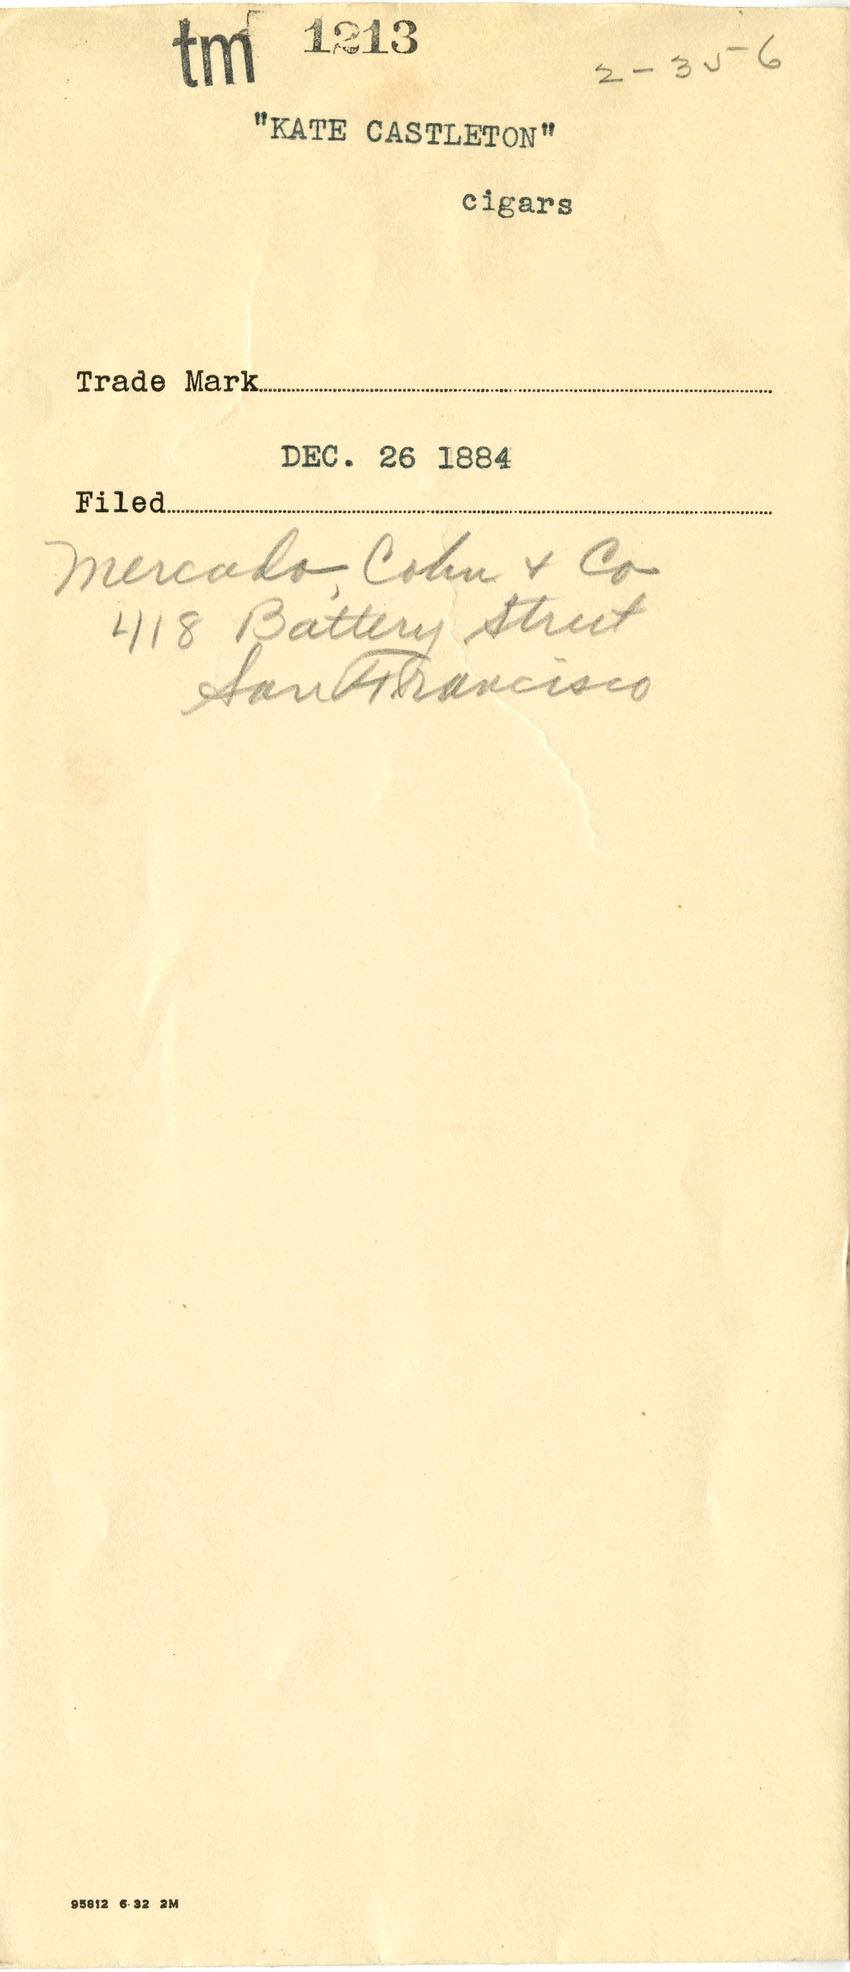 tm 1213
2-356
"KATE CASTLETON"
cigars
Trade Mark
DEC. 26 1884
Filed
Mercado, Cohn + Co
418 Battery Street
San Francisco
95812 6-32 2M